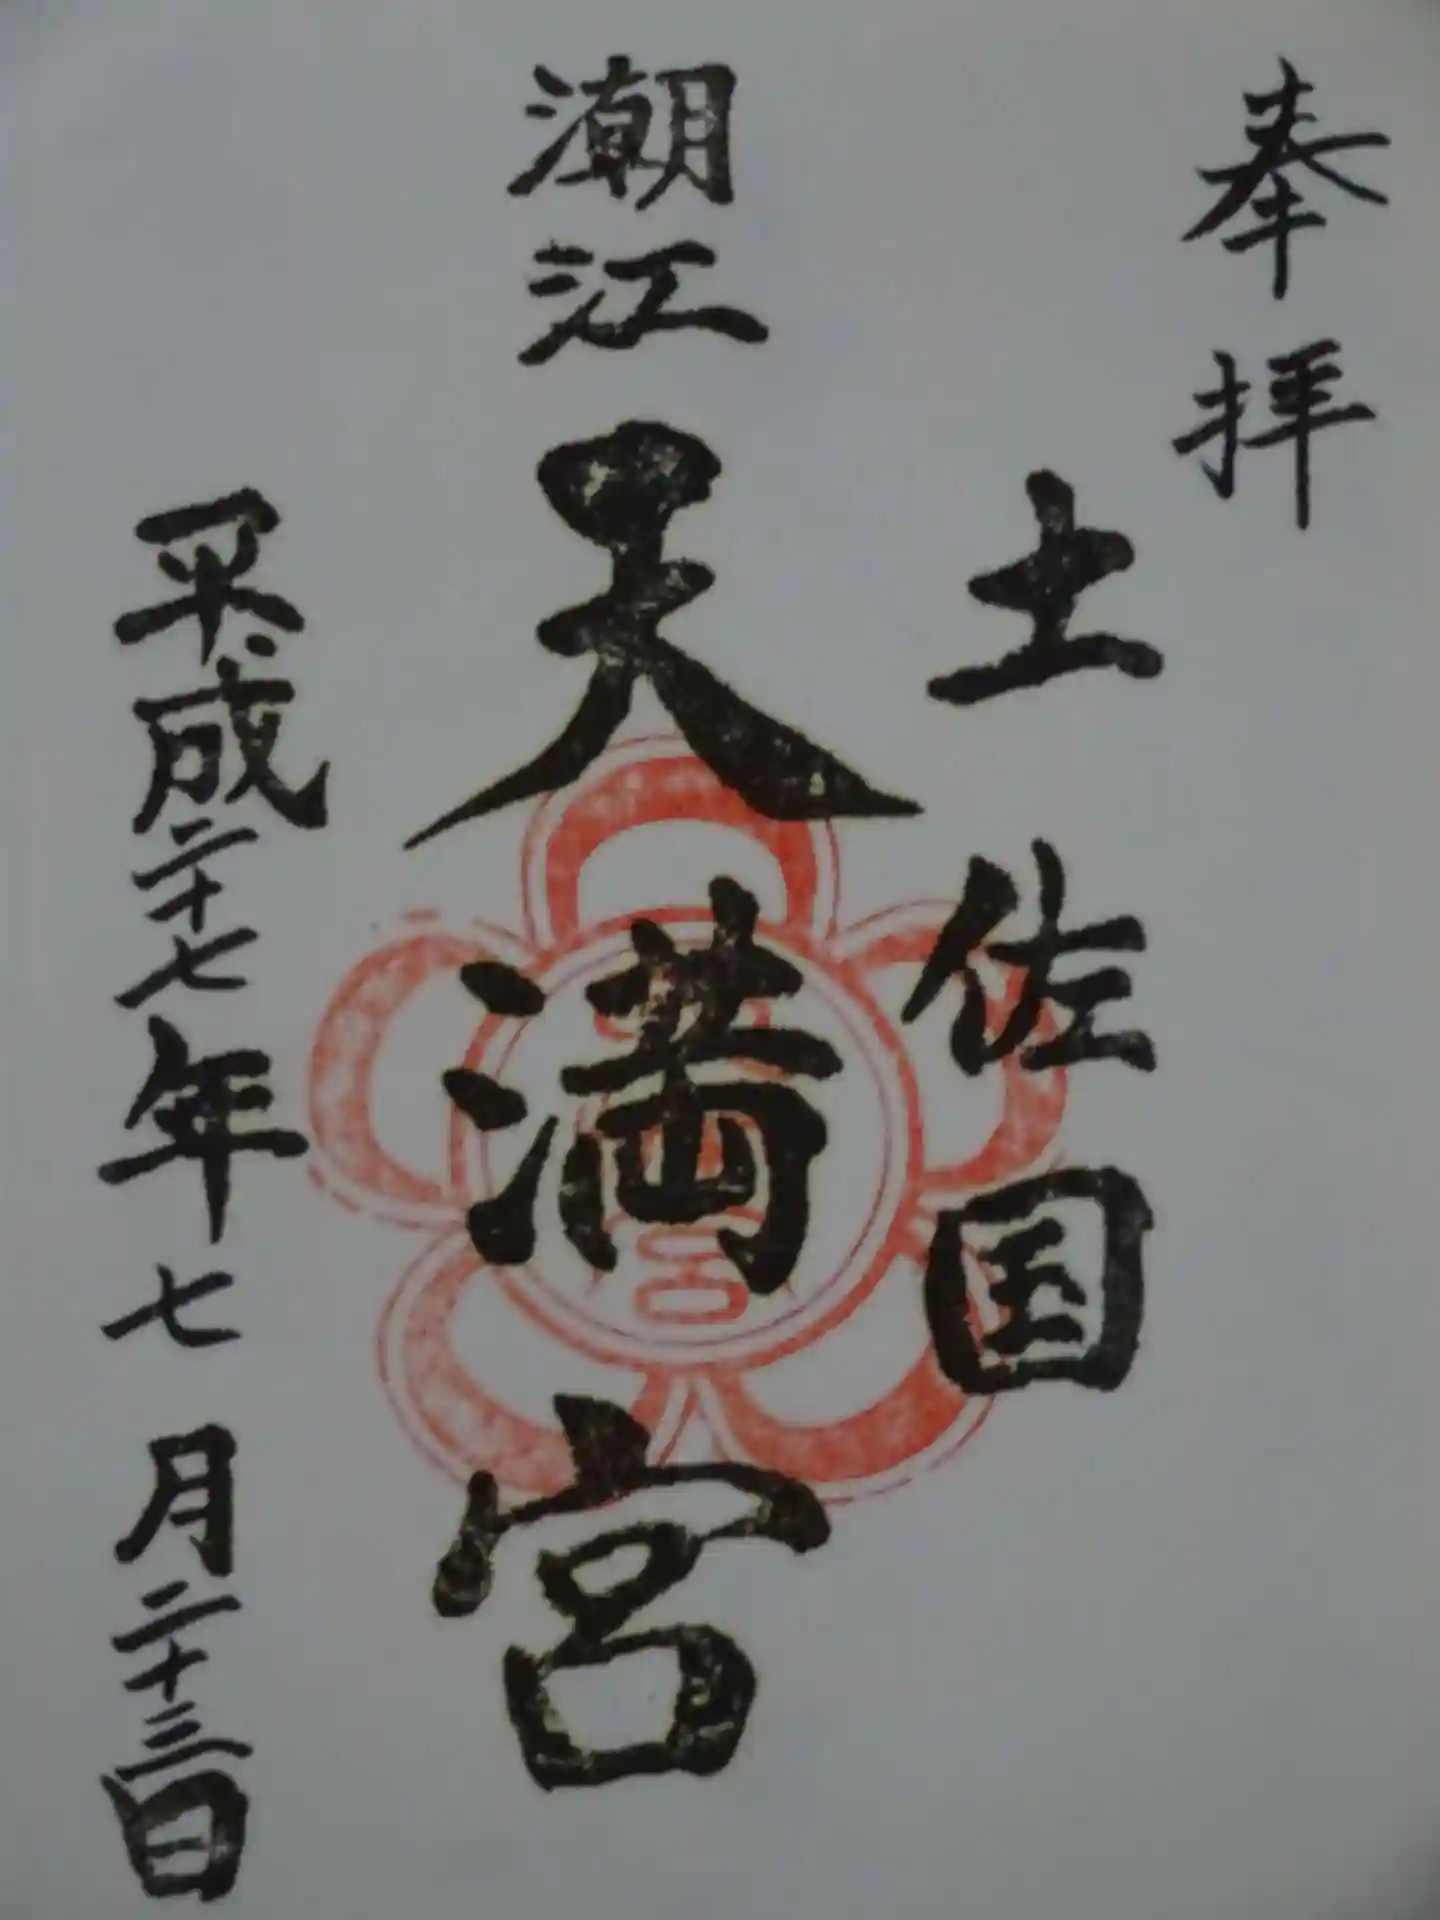 奉拝
土佐国
潮江天満宮
平成二十七年七月二十三日